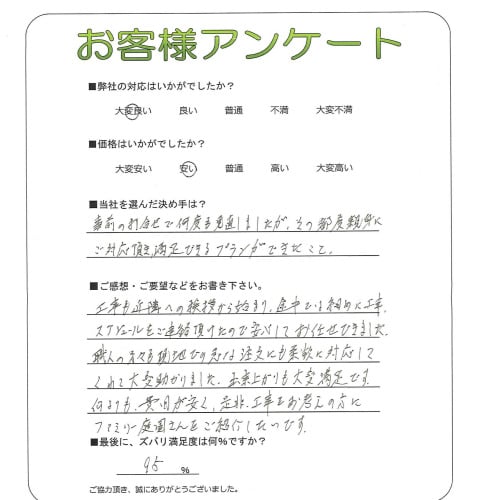 お客様アンケート
■弊社の対応はいかがでしたか？
大変良い 良い 普通 不満 大変不満
■価格はいかがでしたか？
大変安い 安い 普通 高い 大変高い
■当社を選んだ決め手は？
事前の打合せで何度も見直しましたが、その都度親身に
ご対応頂き満足できるプランができたこと。
■ご感想・ご要望などをお書き下さい。
工事も近隣への挨拶から始まり、途中では細めに工事
スケジュールをご連絡頂けたので安心してお任せできました。
職人の方々も現地での急な注文にも柔軟に対応して
くれて大変助かりました。出来上がりも大変満足です。
何よりも、費用が安く、是非、工事をお考えの方に
ファミリー庭園さんをご紹介したいです。
■最後に、ズバリ満足度は何%ですか？
95 %
ご協力頂き、誠にありがとうございました。